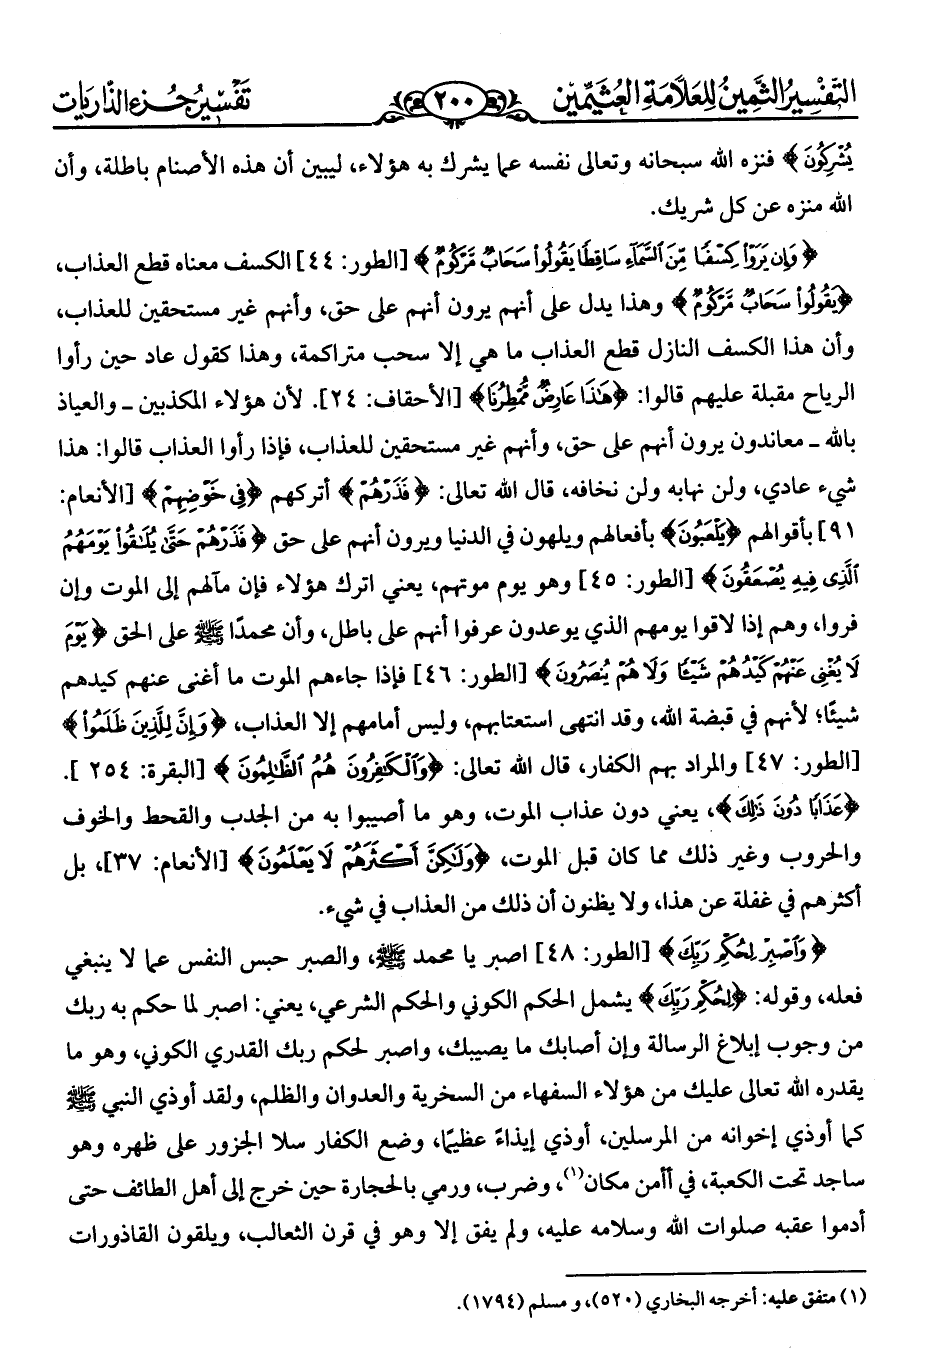 التفسير الثمين للعلامة العثيمين
٢٠٠
تفسير جزء الذاريات
يُشْرِكُونَ﴾ فنزه الله سبحانه وتعالى نفسه عما يشرك به هؤلاء، ليبين أن هذه الأصنام باطلة، وأن
الله منزه عن كل شريك.
﴿وَإِن يَرَوْا۟ كِسْفًا مِّنَ ٱلسَّمَآءِ سَاقِطًا يَقُولُوا۟ سَحَابٌ مَّرْكُومٌ﴾ [الطور: ٤٤] الكسف معناه قطع العذاب،
﴿يَقُولُوا۟ سَحَابٌ مَّرْكُومٌ﴾ وهذا يدل على أنهم يرون أنهم على حق، وأنهم غير مستحقين للعذاب،
وأن هذا الكسف النازل قطع العذاب ما هي إلا سحب متراكمة، وهذا كقول عاد حين رأوا
الرياح مقبلة عليهم قالوا: ﴿هَٰذَا عَارِضٌ مُّمْطِرُنَا﴾ [الأحقاف: ٢٤]. لأن هؤلاء المكذبين ـ والعياذ
بالله ـ معاندون يرون أنهم على حق، وأنهم غير مستحقين للعذاب، فإذا رأوا العذاب قالوا: هذا
شيء عادي، ولن نهابه ولن نخافه، قال الله تعالى: ﴿فَذَرْهُمْ﴾ أتركهم ﴿فِى خَوْضِهِمْ﴾ [الأنعام:
٩١] بأقوالهم ﴿يَلْعَبُونَ﴾ بأفعالهم ويلهون في الدنيا ويرون أنهم على حق ﴿فَذَرْهُمْ حَتَّىٰ يُلَٰقُوا۟ يَوْمَهُمُ
ٱلَّذِى فِيهِ يُصْعَقُونَ﴾ [الطور: ٤٥] وهو يوم موتهم، يعني اترك هؤلاء فإن مآلهم إلى الموت وإن
فروا، وهم إذا لاقوا يومهم الذي يوعدون عرفوا أنهم على باطل، وأن محمدًا ﷺ على الحق ﴿يَوْمَ
لَا يُغْنِى عَنْهُمْ كَيْدُهُمْ شَيْـًٔا وَلَا هُمْ يُنصَرُونَ﴾ [الطور: ٤٦] فإذا جاءهم الموت ما أغنى عنهم كيدهم
شيئًا؛ لأنهم في قبضة الله، وقد انتهى استعتابهم، وليس أمامهم إلا العذاب، ﴿وَإِنَّ لِلَّذِينَ ظَلَمُوا۟﴾
[الطور: ٤٧] والمراد بهم الكفار، قال الله تعالى: ﴿وَٱلْكَٰفِرُونَ هُمُ ٱلظَّٰلِمُونَ﴾ [البقرة: ٢٥٤ ].
﴿عَذَابًا دُونَ ذَٰلِكَ﴾، يعني دون عذاب الموت، وهو ما أصيبوا به من الجدب والقحط والخوف
والحروب وغير ذلك مما كان قبل الموت، ﴿وَلَٰكِنَّ أَكْثَرَهُمْ لَا يَعْلَمُونَ﴾ [الأنعام: ٣٧]، بل
أكثرهم في غفلة عن هذا، ولا يظنون أن ذلك من العذاب في شيء.
﴿وَٱصْبِرْ لِحُكْمِ رَبِّكَ﴾ [الطور: ٤٨] اصبر يا محمد ﷺ، والصبر حبس النفس عما لا ينبغي
فعله، وقوله: ﴿لِحُكْمِ رَبِّكَ﴾ يشمل الحكم الكوني والحكم الشرعي، يعني: اصبر لما حكم به ربك
من وجوب إبلاغ الرسالة وإن أصابك ما يصيبك، واصبر لحكم ربك القدري الكوني، وهو ما
يقدره الله تعالى عليك من هؤلاء السفهاء من السخرية والعدوان والظلم، ولقد أوذي النبي ﷺ
كما أوذي إخوانه من المرسلين، أوذي إيذاءً عظيمًا، وضع الكفار سلا الجزور على ظهره وهو
ساجد تحت الكعبة، في أأمن مكان(١)، وضرب، ورمي بالحجارة حين خرج إلى أهل الطائف حتى
أدموا عقبه صلوات الله وسلامه عليه، ولم يفق إلا وهو في قرن الثعالب، ويلقون القاذورات
(١) متفق عليه: أخرجه البخاري (٥٢٠)، و مسلم (١٧٩٤).